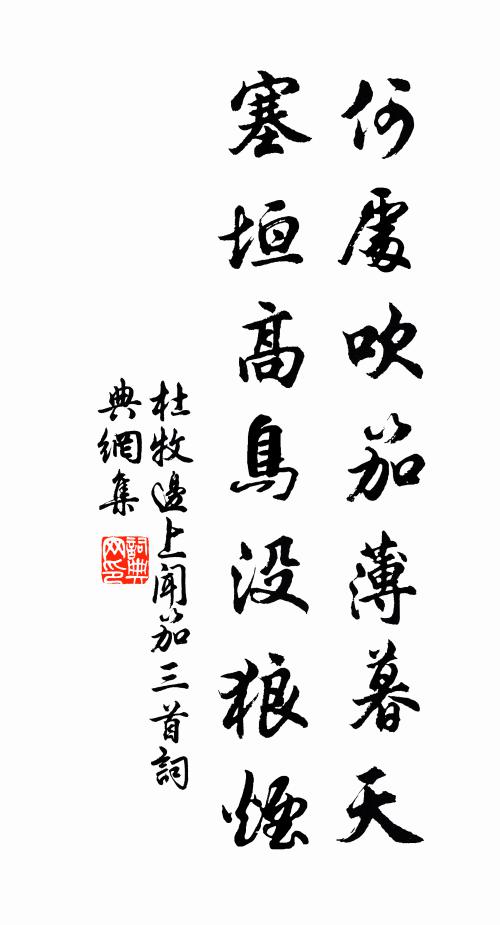 何處吹笳薄暮天
塞垣高鳥没狼煙
杜牧邊上聞笳三首詞
典網集
詞典
网印